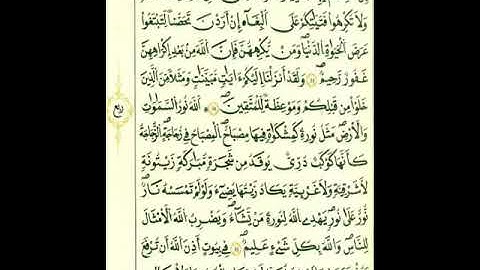 وَلَا تُكْرِهُوا فَتَيَٰتِكُمْ عَلَى ٱلْبِغَآءِ انْ أَرَدْنَ تَحَصُّنًا لِّتَبْتَغُوا
عَرَضَ ٱلْحَيَوٰةِ ٱلدُّنْيَا وَمَنْ يُكْرِههُّنَّ فَإِنَّ ٱللَّهَ مِنۢ بَعْدِ إِكْرَٰهِهِنَّ
غَفُورٌ رَّحِيمٌ وَلَقَدْ أَنزَلْنَا إِلَيْكُمْ ءَايَٰتٍ مُّبَيَّنَٰتٍ وَمَثَلًا مِّنَ ٱلَّذِينَ
خَلَوْا مِن قَبْلِكُمْ وَمَوْعِظَةً لِّلْمُتَّقِينَ ٱللَّهُ نُورُ ٱلسَّمَٰوَٰتِ
وَٱلْأَرْضِ مَثَلُ نُورِهِ كَمِشْكَوٰةٍ فِيهَا مِصْبَاحٌ ٱلْمِصْبَاحُ فِي زُجَاجَةٍ ٱلزُّجَاجَةُ
كَأَنَّهَا كَوْكَبٌ دُرِّيٌّ يُوقَدُ مِن شَجَرَةٍ مُّبَٰرَكَةٍ زَيْتُونَةٍ
لَّا شَرْقِيَّةٍ وَلَا غَرْبِيَّةٍ يَكَادُ زَيْتُهَا يُضِيٓءُ وَلَوْ لَمْ تَمْسَسْهُ نَارٌ
نُّورٌ عَلَىٰ نُورٍ يَهْدِي ٱللَّهُ لِنُورِهِ مَن يَشَآءُ وَيَضْرِبُ ٱللَّهُ ٱلْأَمْثَٰلَ
لِلنَّاسِ وَٱللَّهُ بِكُلِّ شَيْءٍ عَلِيمٌ فِي بُيُوتٍ أَذِنَ ٱللَّهُ أَن تُرْفَعَ
ربع